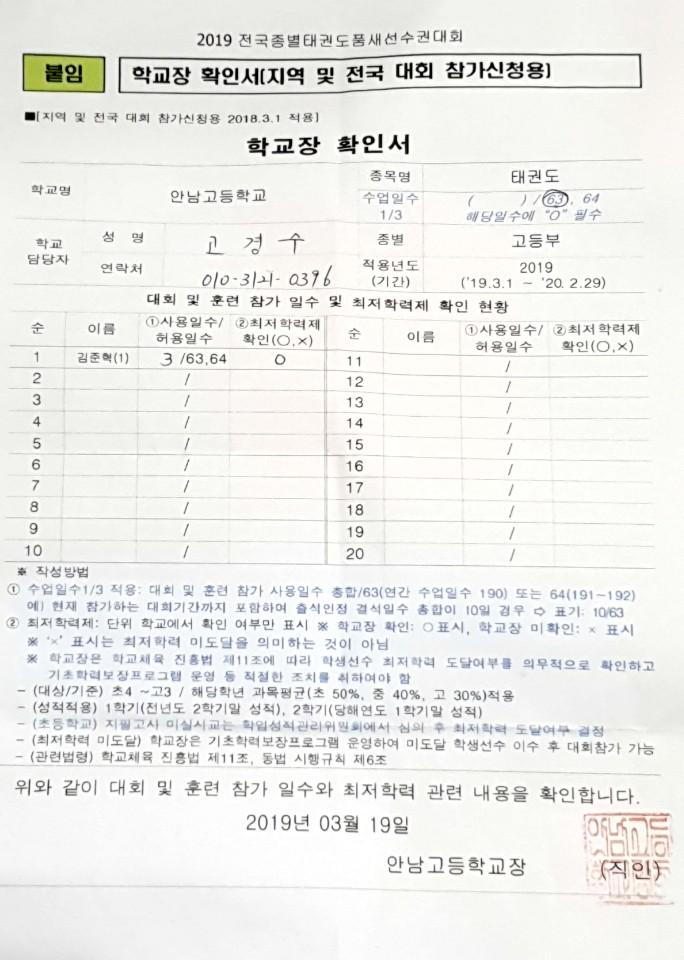 2019 전국종별태권도품새선수권대회
붙임 학교장 확인서(지역 및 전국 대회 참가신청용)
■[지역 및 전국 대회 참가신청용 2018.3.1 적용]
학교장 확인서
학교명 안남고등학교 종목명 태권도
수업일수 1/3 ( ) / 63, 64
해당일수에 "O" 필수
학교 담당자 성 명 고경수 종별 고등부
연락처 010-3121-0396 적용년도 (기간) 2019
('19.3.1 ~ '20.2.29)
대회 및 훈련 참가 일수 및 최저학력제 확인 현황
순 이름 ①사용일수/허용일수 ②최저학력제 확인(○,×) 순 이름 ①사용일수/허용일수 ②최저학력제 확인(○,×)
1 김준혁(1) 3 /63,64 O 11 /
2 / 12 /
3 / 13 /
4 / 14 /
5 / 15 /
6 / 16 /
7 / 17 /
8 / 18 /
9 / 19 /
10 / 20 /
※ 작성방법
① 수업일수1/3 적용: 대회 및 훈련 참가 사용일수 총합/63(연간 수업일수 190) 또는 64(191~192)
예) 현재 참가하는 대회기간까지 포함하여 출석인정 결석일수 총합이 10일 경우 ⇨ 표기: 10/63
② 최저학력제: 단위 학교에서 확인 여부만 표시 ※ 학교장 확인: ○표시, 학교장 미확인: × 표시
※ '×' 표시는 최저학력 미도달을 의미하는 것이 아님
※ 학교장은 학교체육 진흥법 제11조에 따라 학생선수 최저학력 도달여부를 의무적으로 확인하고
기초학력보장프로그램 운영 등 적절한 조치를 취하여야 함
- (대상/기준) 초4 ~고3 / 해당학년 과목평균(초 50%, 중 40%, 고 30%)적용
- (성적적용) 1학기(전년도 2학기말 성적), 2학기(당해연도 1학기말 성적)
- (초등학교) 지필고사 미실시교는 학업성적관리위원회에서 심의 후 최저학력 도달여부 결정
- (최저학력 미도달) 학교장은 기초학력보장프로그램 운영하여 미도달 학생선수 이수 후 대회참가 가능
- (관련법령) 학교체육 진흥법 제11조, 동법 시행규칙 제6조
위와 같이 대회 및 훈련 참가 일수와 최저학력 관련 내용을 확인합니다.
2019년 03월 19일
안남고등학교장 (직인)